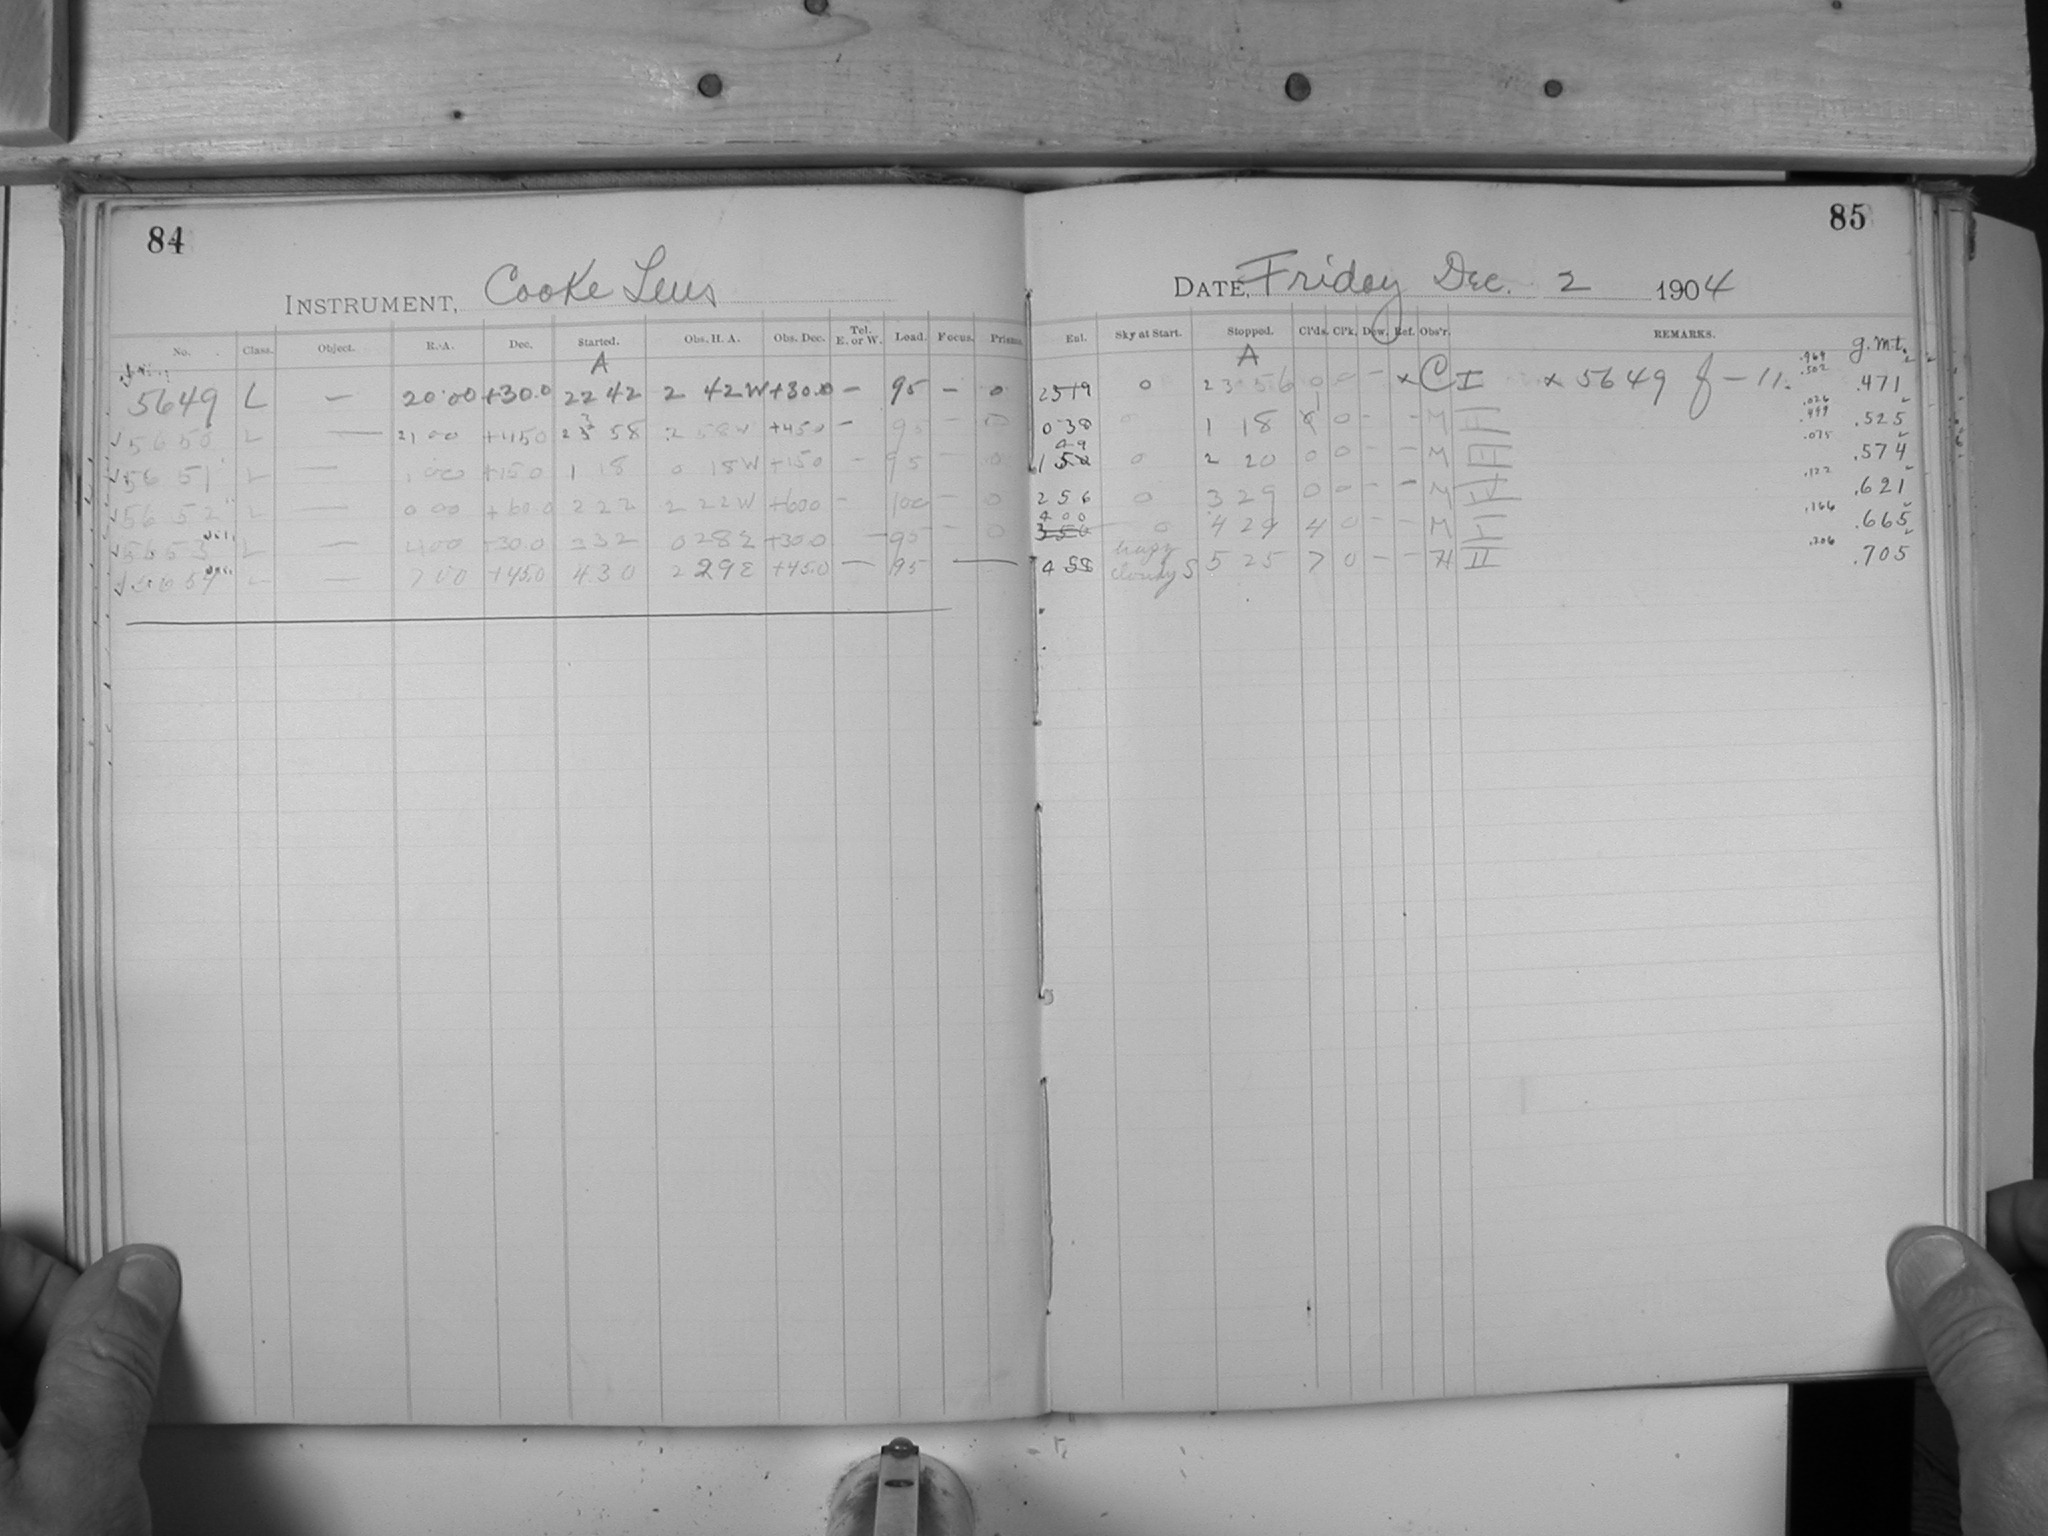 84
INSTRUMENT, Cooke Lens
No. Class. Object. R. A. Dec. Started. Obs. H. A. Obs. Dec. Tel. E. or W. Load. Focus. Prisms.
A
5649 L — 20 00 +30.0 22 42 2 42 W +30.0 — 95 — 0
√ 5650 L — 21 00 +45.0 23 58 2 58 W +45.0 — 95 — 0
√ 5651 L — 1 00 +15.0 1 18 0 18 W +15.0 — 95 — 0
√ 5652 L — 0 00 +60.0 2 22 2 22 W +60.0 — 100 — 0
√ 5653 L — 4 00 +30.0 3 32 0 28 E +30.0 — 95 0
√ 5654 L — 7 00 +45.0 4 30 2 29 E +45.0 — 95 —
85
DATE, Friday Dec. 2 1904
Ent. Sky at Start. Stopped. Cl'ds. Cl'k. Dew. Ref. Obs'r. REMARKS. g.m.t.
A
0 23 56 0 0 - x C I x 5649 f - 11. .471
0 38 0 1 18 0 - - M II .499 .525
49
1 50 0 2 20 0 0 - - M III .075 .574
2 56 0 3 29 0 0 - - M IV .122 .621
4 00
3 50 0 4 29 4 0 - - M I .166 .665
4 58 hazy cloudy S 5 25 7 0 - - H II .206 .705